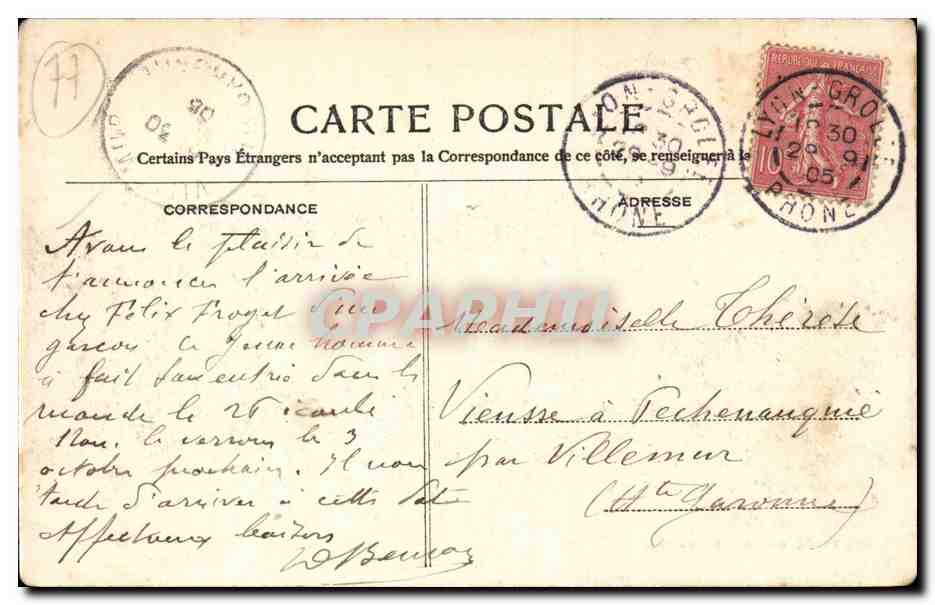 77
CARTE POSTALE
Certains Pays Étrangers n'acceptant pas la Correspondance de ce côté, se renseigner à la
RÉPUBLIQUE FRANÇAISE
10
LYON-GROLÉE
30
29 9
05
RHONE
LYON-GROLÉE
30
29 9
RHONE
30
05
CORRESPONDANCE
Avons le plaisir de
t'annoncer l'arrivée
chez Félix Froget d'un
garçon Ce jeune homme
a fait son entrée dans le
monde le 26 écoulé
Nous le verrons le 3
octobre prochain. Il nous
tarde d'arriver à cette date
Affectueux baisers
ADRESSE
Mademoiselle Thérèse
Vieusse à Pechenauquié
par Villemur
(Hte Garonne)
CPAPHIL